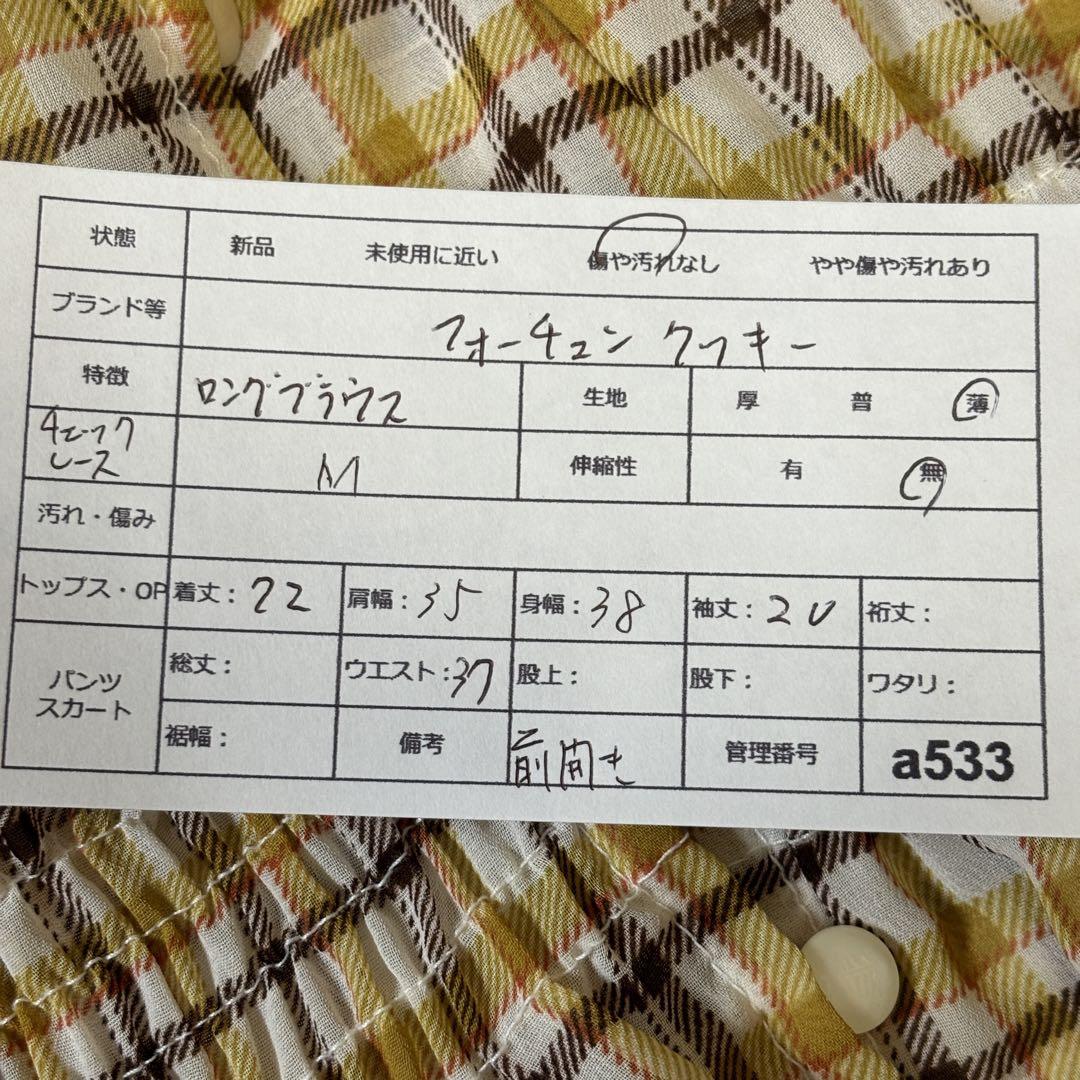 状態 新品 未使用に近い 傷や汚れなし やや傷や汚れあり
ブランド等 フォーチュンクッキー
特徴 ロングブラウス 生地 厚 普 薄
チェック
レース M 伸縮性 有 無
汚れ・傷み
トップス・OP 着丈：72 肩幅：35 身幅：38 袖丈：20 裄丈：
パンツ
スカート 総丈： ウエスト：37 股上： 股下： ワタリ：
裾幅： 備考 前開き 管理番号 a533